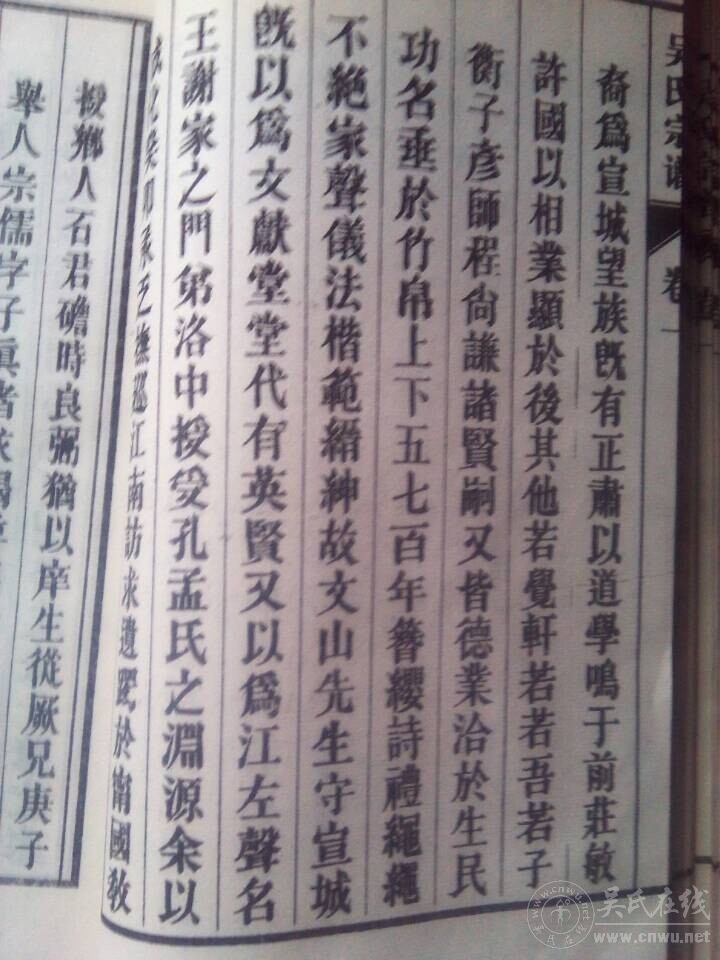 吳氏宗譜
卷一
裔爲宣城望族旣有正肅以道學鳴于前莊敏
許國以相業顯於後其他若覺軒若若吾若子
衡子彥師程尙謙諸賢嗣又皆德業洽於生民
功名垂於竹帛上下五七百年簪纓詩禮繩繩
不絶家聲儀法楷範縉紳故文山先生守宣城
旣以爲文獻堂堂代有英賢又以爲江左聲名
王謝家之門第洛中授受孔孟氏之淵源余以
癸卯承乏撫巡江南訪求遺躅於甯國敎
授鄉人石君磻時良弼猶以庠生從厥兄庚子
舉人崇儒字子真者
吴氏在线
www.cnwu.net